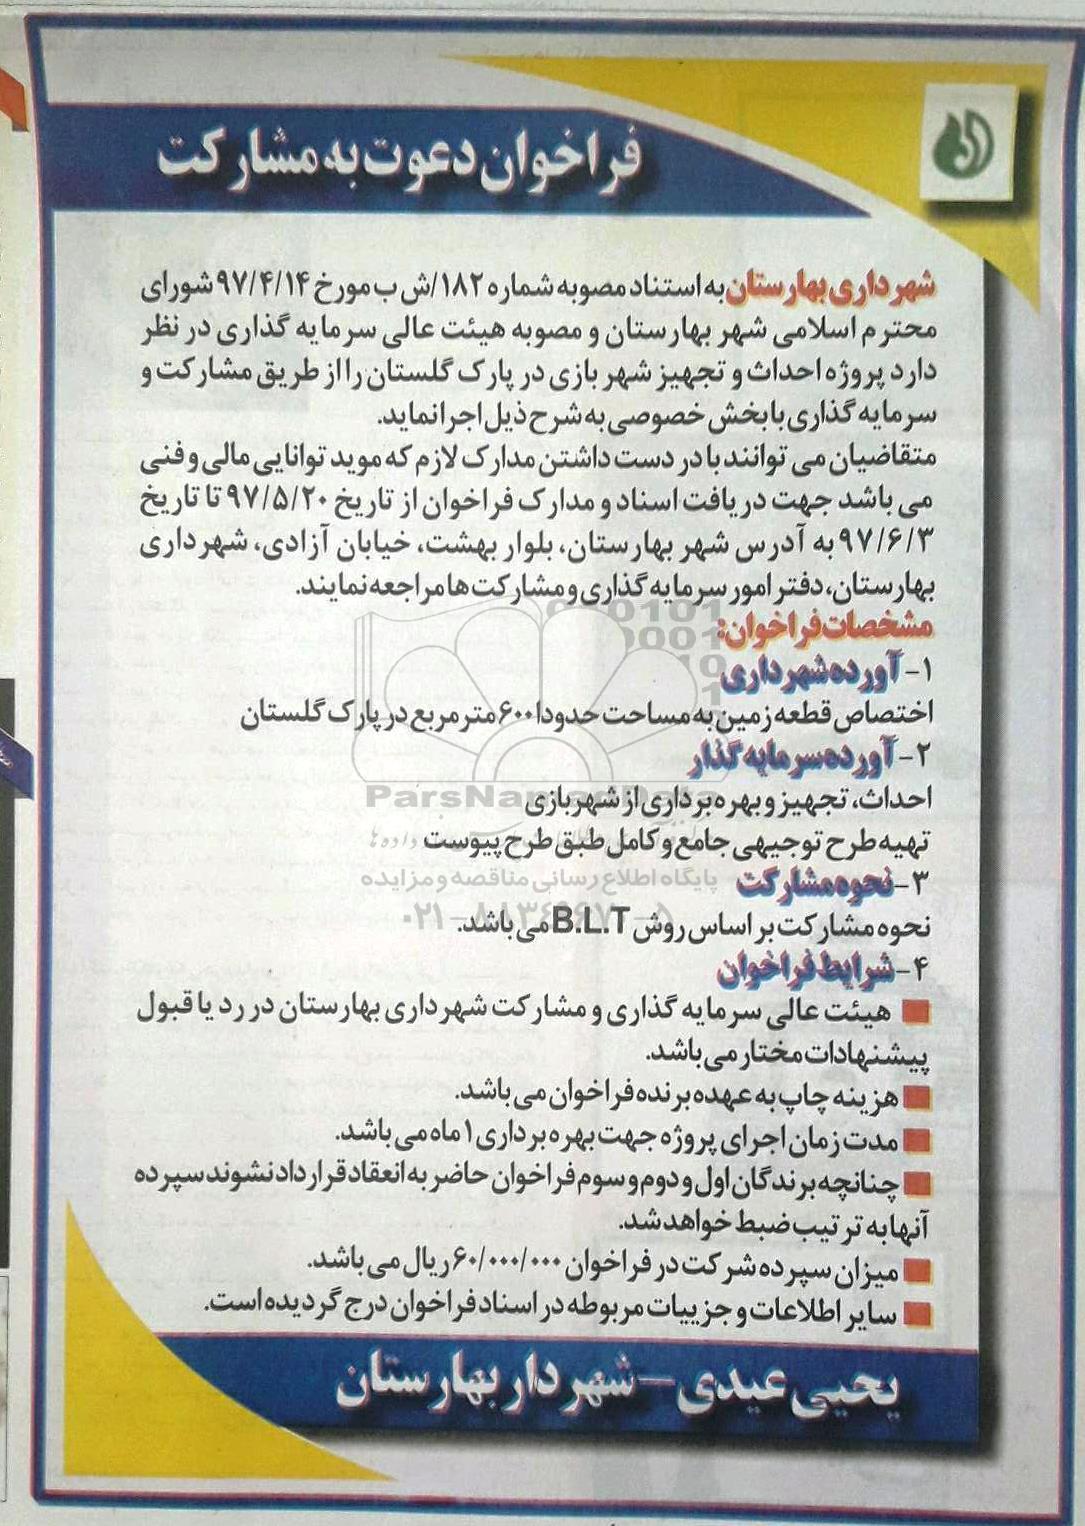 فراخوان دعوت به مشارکت
شهرداری بهارستان به استناد مصوبه شماره ۱۸۲/ش ب مورخ ۹۷/۴/۱۴ شورای
محترم اسلامی شهر بهارستان و مصوبه هیئت عالی سرمایه گذاری در نظر
دارد پروژه احداث و تجهیز شهر بازی در پارک گلستان را از طریق مشارکت و
سرمایه گذاری با بخش خصوصی به شرح ذیل اجرا نماید.
متقاضیان می توانند با در دست داشتن مدارک لازم که موید توانایی مالی و فنی
می باشد جهت دریافت اسناد و مدارک فراخوان از تاریخ ۹۷/۵/۲۰ تا تاریخ
۹۷/۶/۳ به آدرس شهر بهارستان، بلوار بهشت، خیابان آزادی، شهرداری
بهارستان، دفتر امور سرمایه گذاری و مشارکت ها مراجعه نمایند.
مشخصات فراخوان:
۱- آورده شهرداری
اختصاص قطعه زمین به مساحت حدودا ۶۰۰ متر مربع در پارک گلستان
۲- آورده سرمایه گذار
احداث، تجهیز و بهره برداری از شهربازی
ParsNamadData
تهیه طرح توجیهی جامع و کامل طبق طرح پیوست
۳- نحوه مشارکت
پایگاه اطلاع رسانی مناقصه و مزایده
نحوه مشارکت بر اساس روش B.L.T می باشد.
۴- شرایط فراخوان
هیئت عالی سرمایه گذاری و مشارکت شهرداری بهارستان در رد یا قبول
پیشنهادات مختار می باشد.
هزینه چاپ به عهده برنده فراخوان می باشد.
مدت زمان اجرای پروژه جهت بهره برداری ۱ ماه می باشد.
چنانچه برندگان اول و دوم و سوم فراخوان حاضر به انعقاد قرارداد نشوند سپرده
آنها به ترتیب ضبط خواهد شد.
میزان سپرده شرکت در فراخوان ۶۰/۰۰۰/۰۰۰ ریال می باشد.
سایر اطلاعات و جزییات مربوطه در اسناد فراخوان درج گردیده است.
یحیی عیدی - شهردار بهارستان